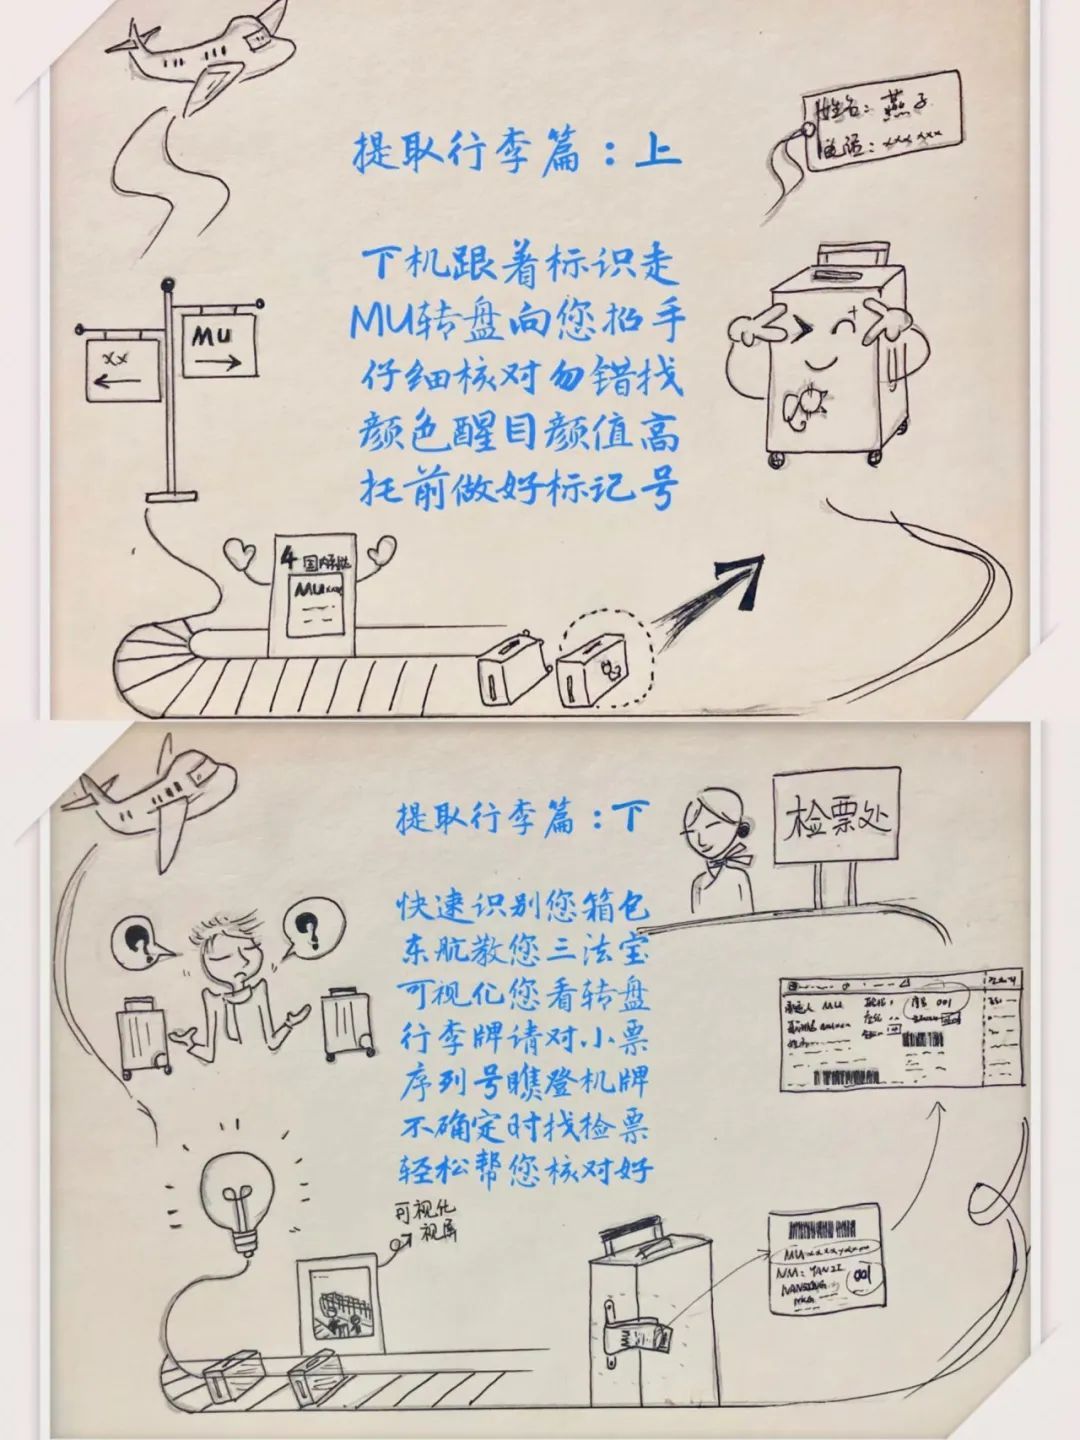 提取行李篇：上
姓名：燕子
电话：xxx xxx
下机跟着标识走
MU转盘向您招手
仔细核对勿错找
颜色醒目颜值高
托前做好标记号
MU
xx
4 国内到达
MUxxx
提取行李篇：下
检票处
快速识别您箱包
东航教您三法宝
可视化您看转盘
行李牌请对小票
序列号瞧登机牌
不确定时找检票
轻松帮您核对好
MU
序号 001
可视化
视屏
MUxxxxxxxx
NM: YANZI
001